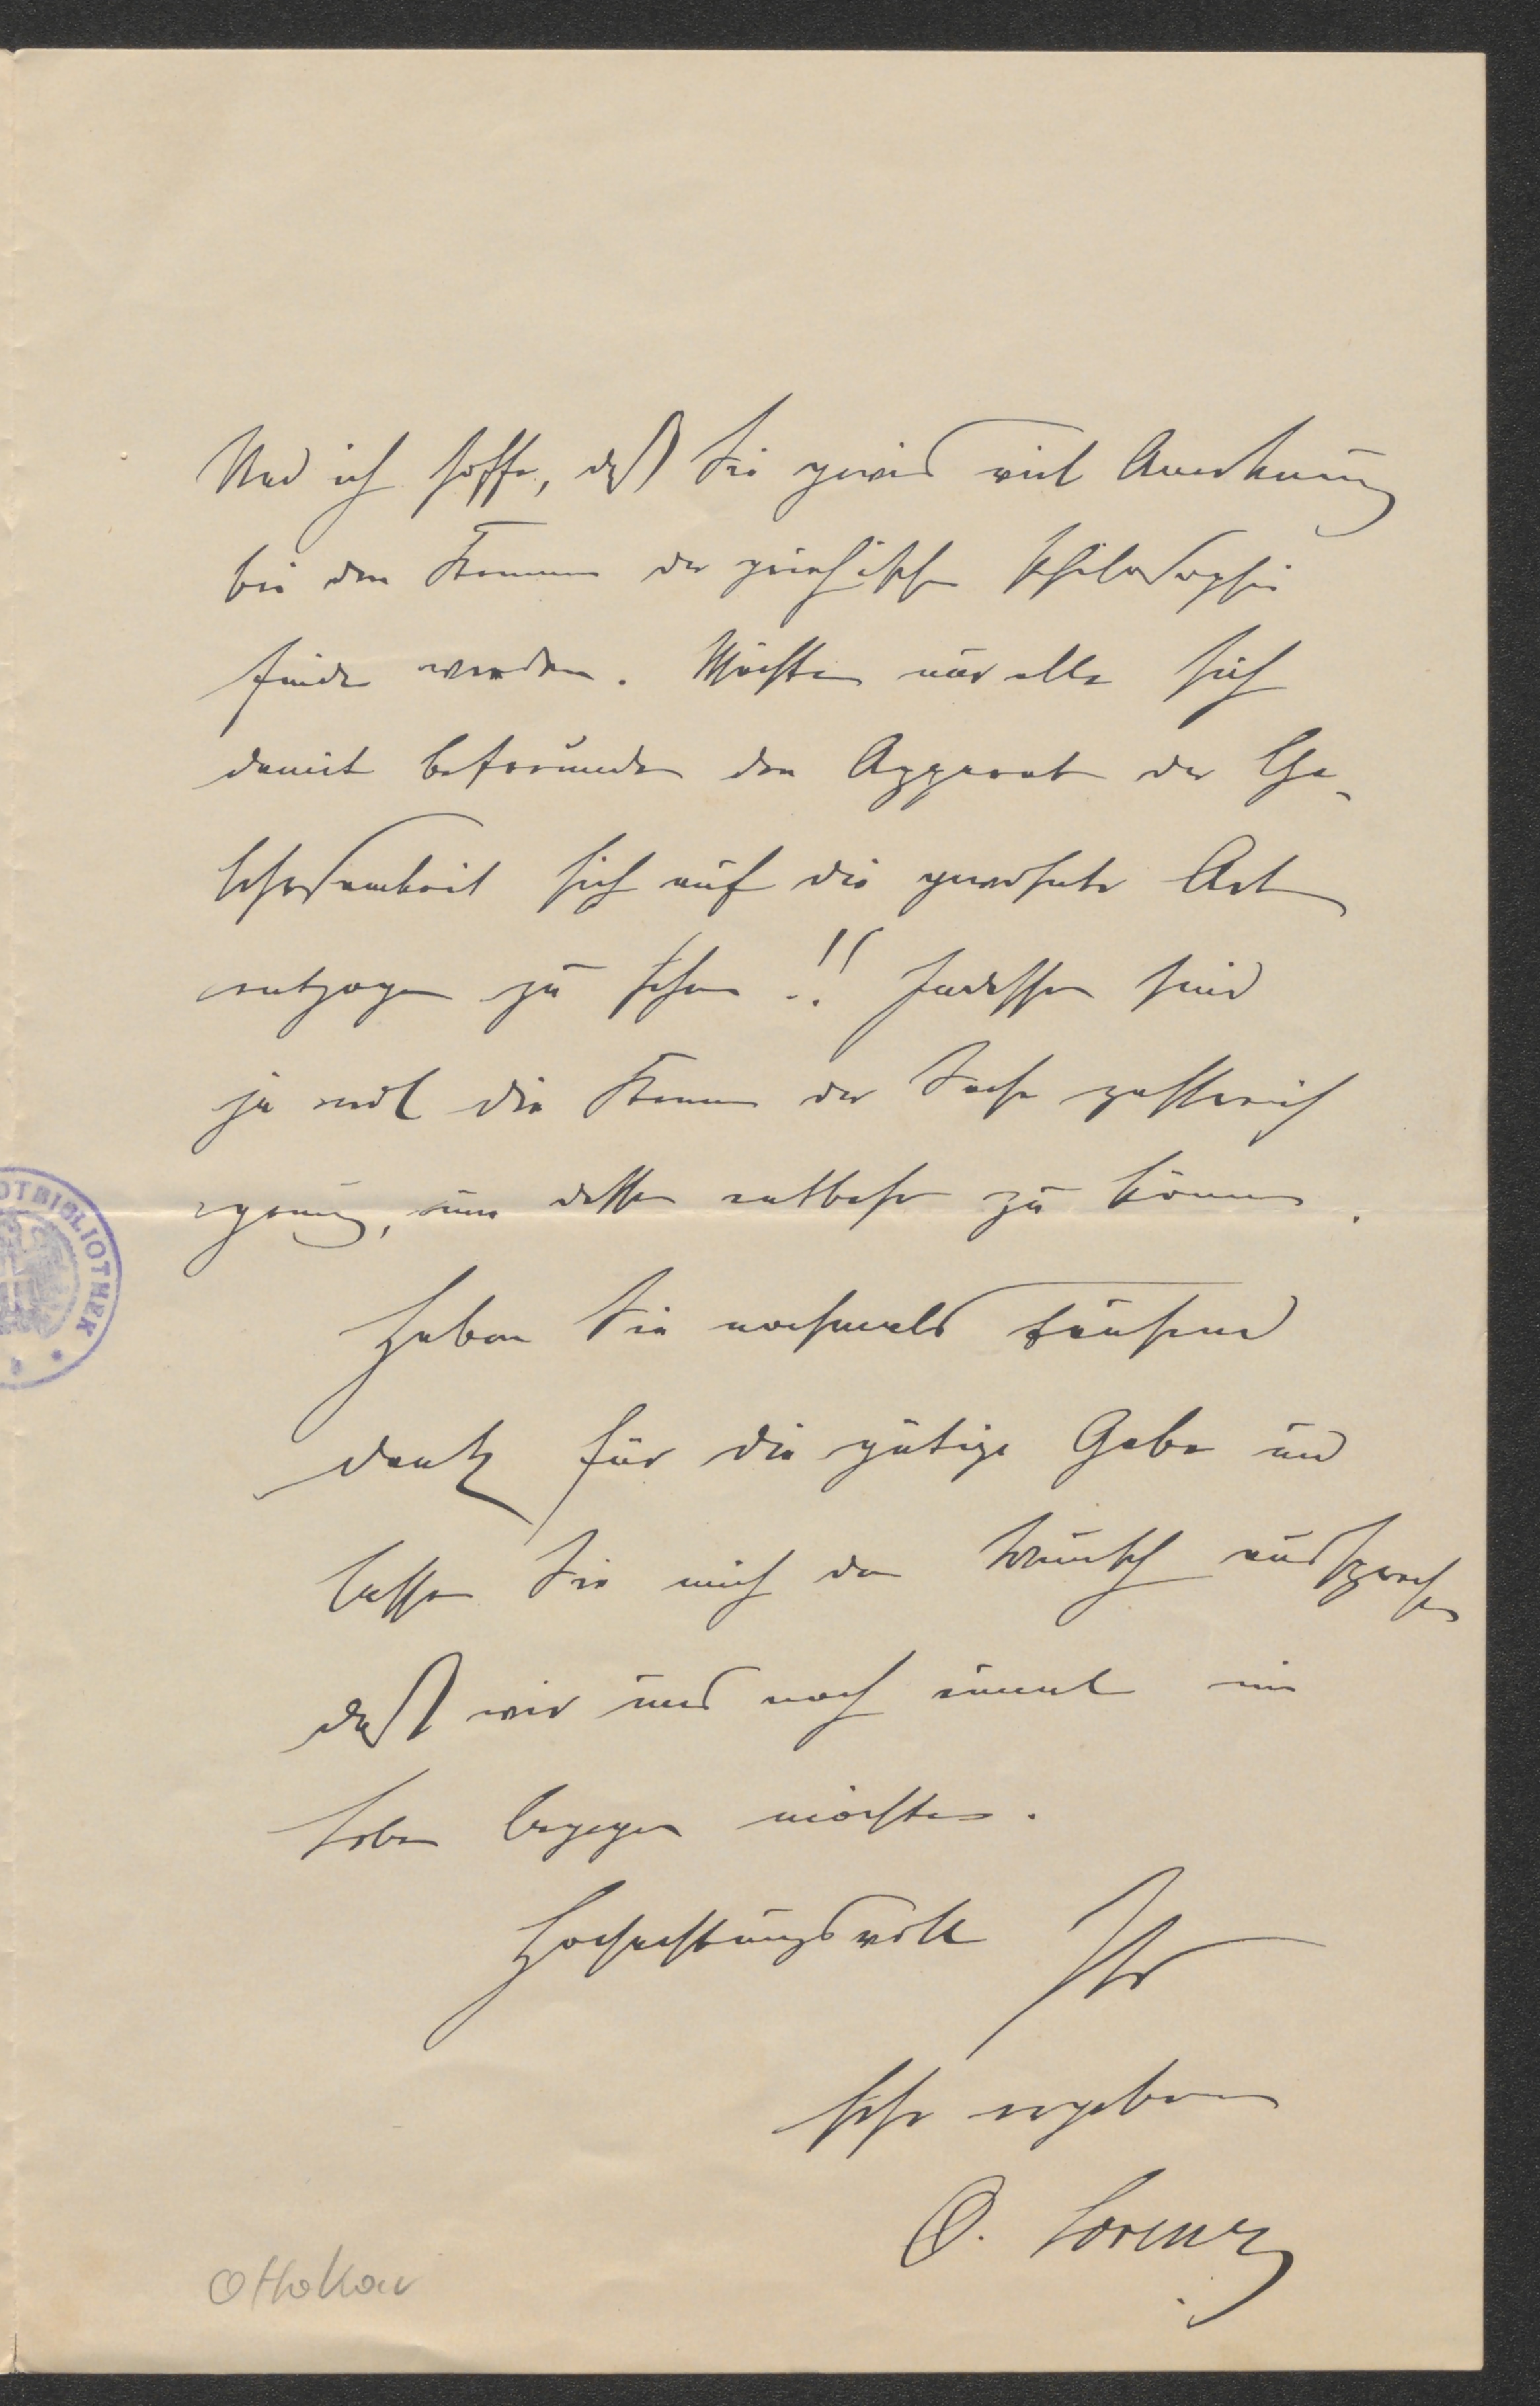 Und ich hoffe, daß Sie gewis viel Anerkenung
bei den Kennern der griechischen Philosophie
finden werden. Möchten nur alle sich
damit befreunden den Apparat der Ge-
lehrsamkeit sich auf die gewohnte Art
entzogen zu sehen!! Indessen sind
ja wol die Kenner der Sache zahlreich
genug, um dessen entbehren zu können.
Haben Sie nochmals tausend
Dank für die gütige Gabe und
lassen Sie mich den Wunsch aussprechen
daß wir uns noch einmal im
Leben begegnen möchten.
Hochachtungsvoll Ihr
sehr ergebener
O. Lorenz
Ottokar
OTBIBLIOTHEK